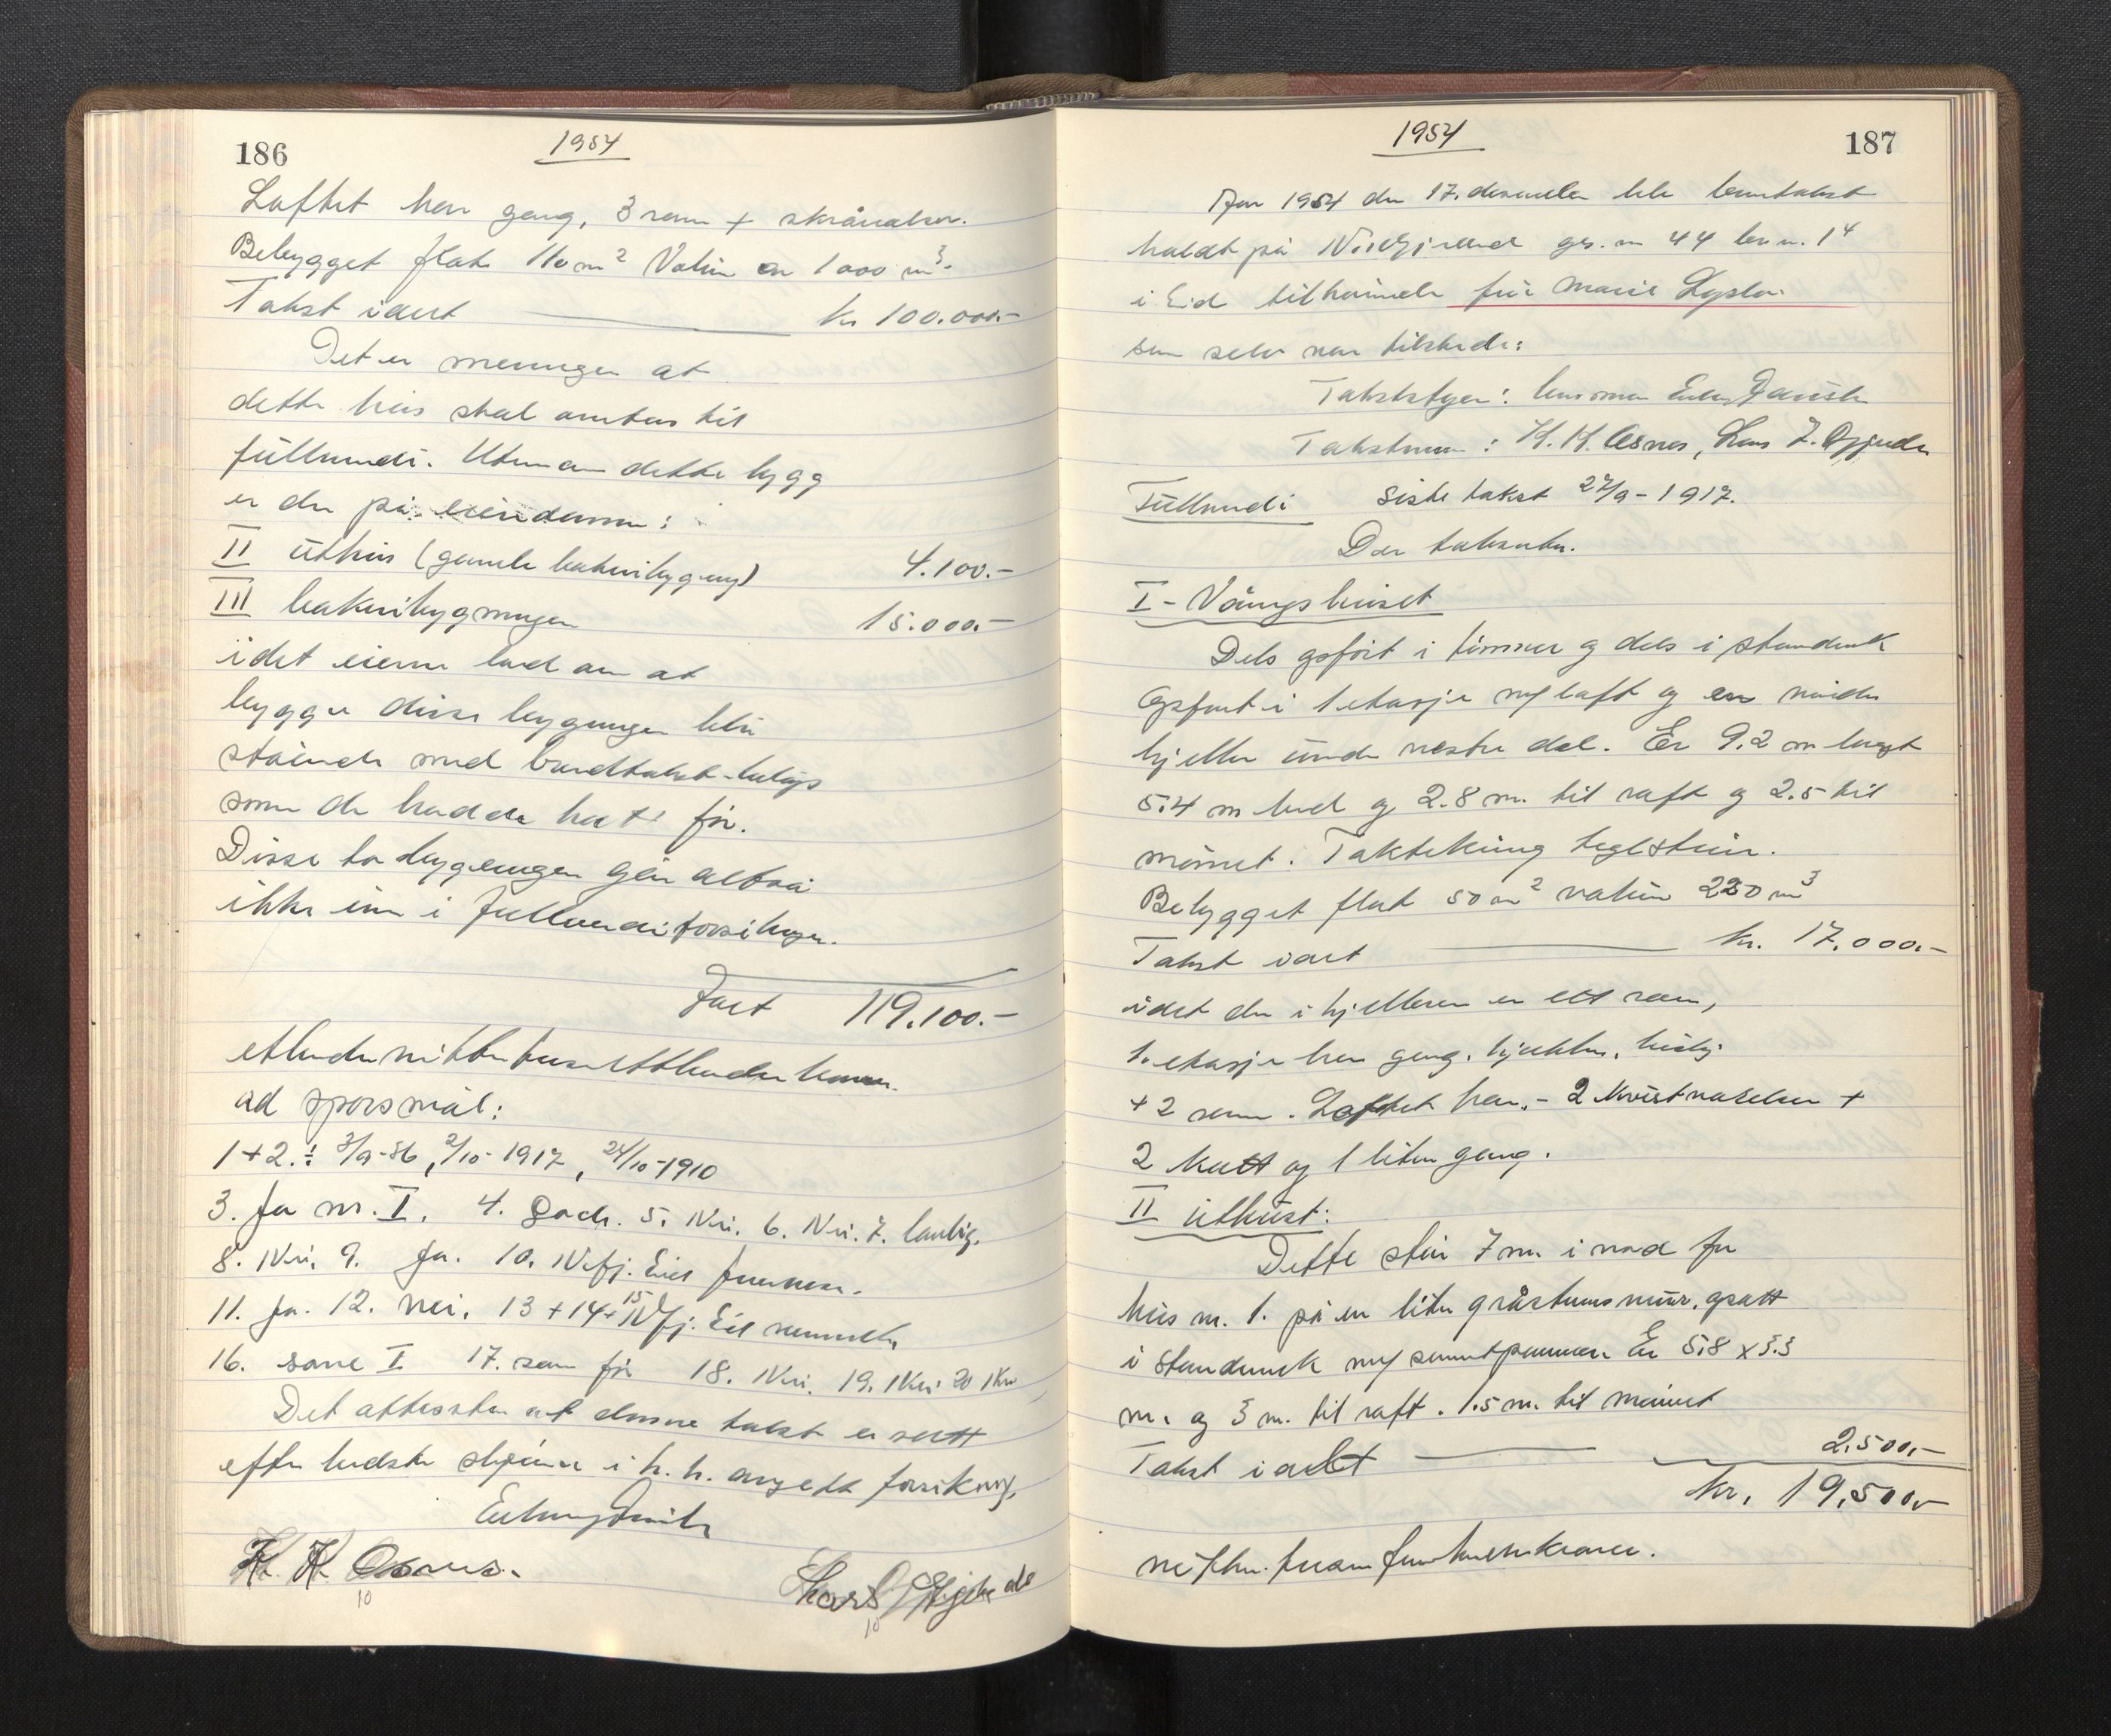 186
1954
Loftet har gang, 3 rom + skråvalser.
Bebygget flate 110 m² Volum er 1000 m³.
Takst i alt kr 100.000.-
Det er meningen at
dette hus skal omtas til
fullverdi. Utenom dette bygg
er der på eiendommen:
II uthus (gamle bakeribygning) 4.100.-
III bakeribygningen 15.000.-
idet eieren bad om at
begge disse bygninger blir
stående med branntakst-beløp
som de hadde hatt før.
Disse to bygninger går altså
ikke inn i fullverdiforsikringen.
Iallt 119.100.-
etthundre nitten tusen etthundre kroner.
ad spørsmål:
1+2.: 3/9-36, 2/10-1917, 24/10-1910
3. Ja nr. I. 4. Gode. 5. Nei. 6. Nei. 7.
8. Nei. 9. Ja. 10. N.fj. Eid
11. Ja. 12. Nei. 13+14+15 N.fj. Eid
16. I 17. som før 18. Nei. 19. Nei 20 Nei
Det attesteres at denne takst er satt
efter bedste skjønn i h.h. avgett forsikring.
K. K. Osnes.
10
10
1954
187
År 1954 den 17. desember ble branntakst
holdt på Nordfjordeid gr. nr 44 br. nr. 14
i Eid tilhørende fru Marie Lyslo.
som selv var tilstede:
Takstbestyrer: lensmann
Takstmenn: K. K. Osnes, Lars
Fullverdi Siste takst 27/9-1917.
Der takseres.
I - Våningshuset
Dels oppført i tømmer og dels i stenderverk
Oppført i 1 etasje m/loft og en mindre
kjeller under vestre del. Er 9.2 m langt
5.4 m bred og 2.8 m. til raft og 2.5 til
mønet. Taktekking teglstein.
Bebygget flate 50 m² volum 230 m³
Takst i alt kr. 17.000.-
idet der i kjelleren er ett rom,
1. etasje har gang, kjøkken,
+ 2 rom. Loftet har - 2 kvistværelser +
2 kott og 1 liten gang.
II uthuset:
Dette står 7 m. i nord for
hus nr. 1. på en liten gråsteinsmur, opsatt
i stenderverk m/ Er 5.8 x 3.3
m. og 3 m. til raft. 1.5 m. til mønet
Takst i alt 2.500.-
kr. 19.500.-
nitten tusen fem hundre kroner.